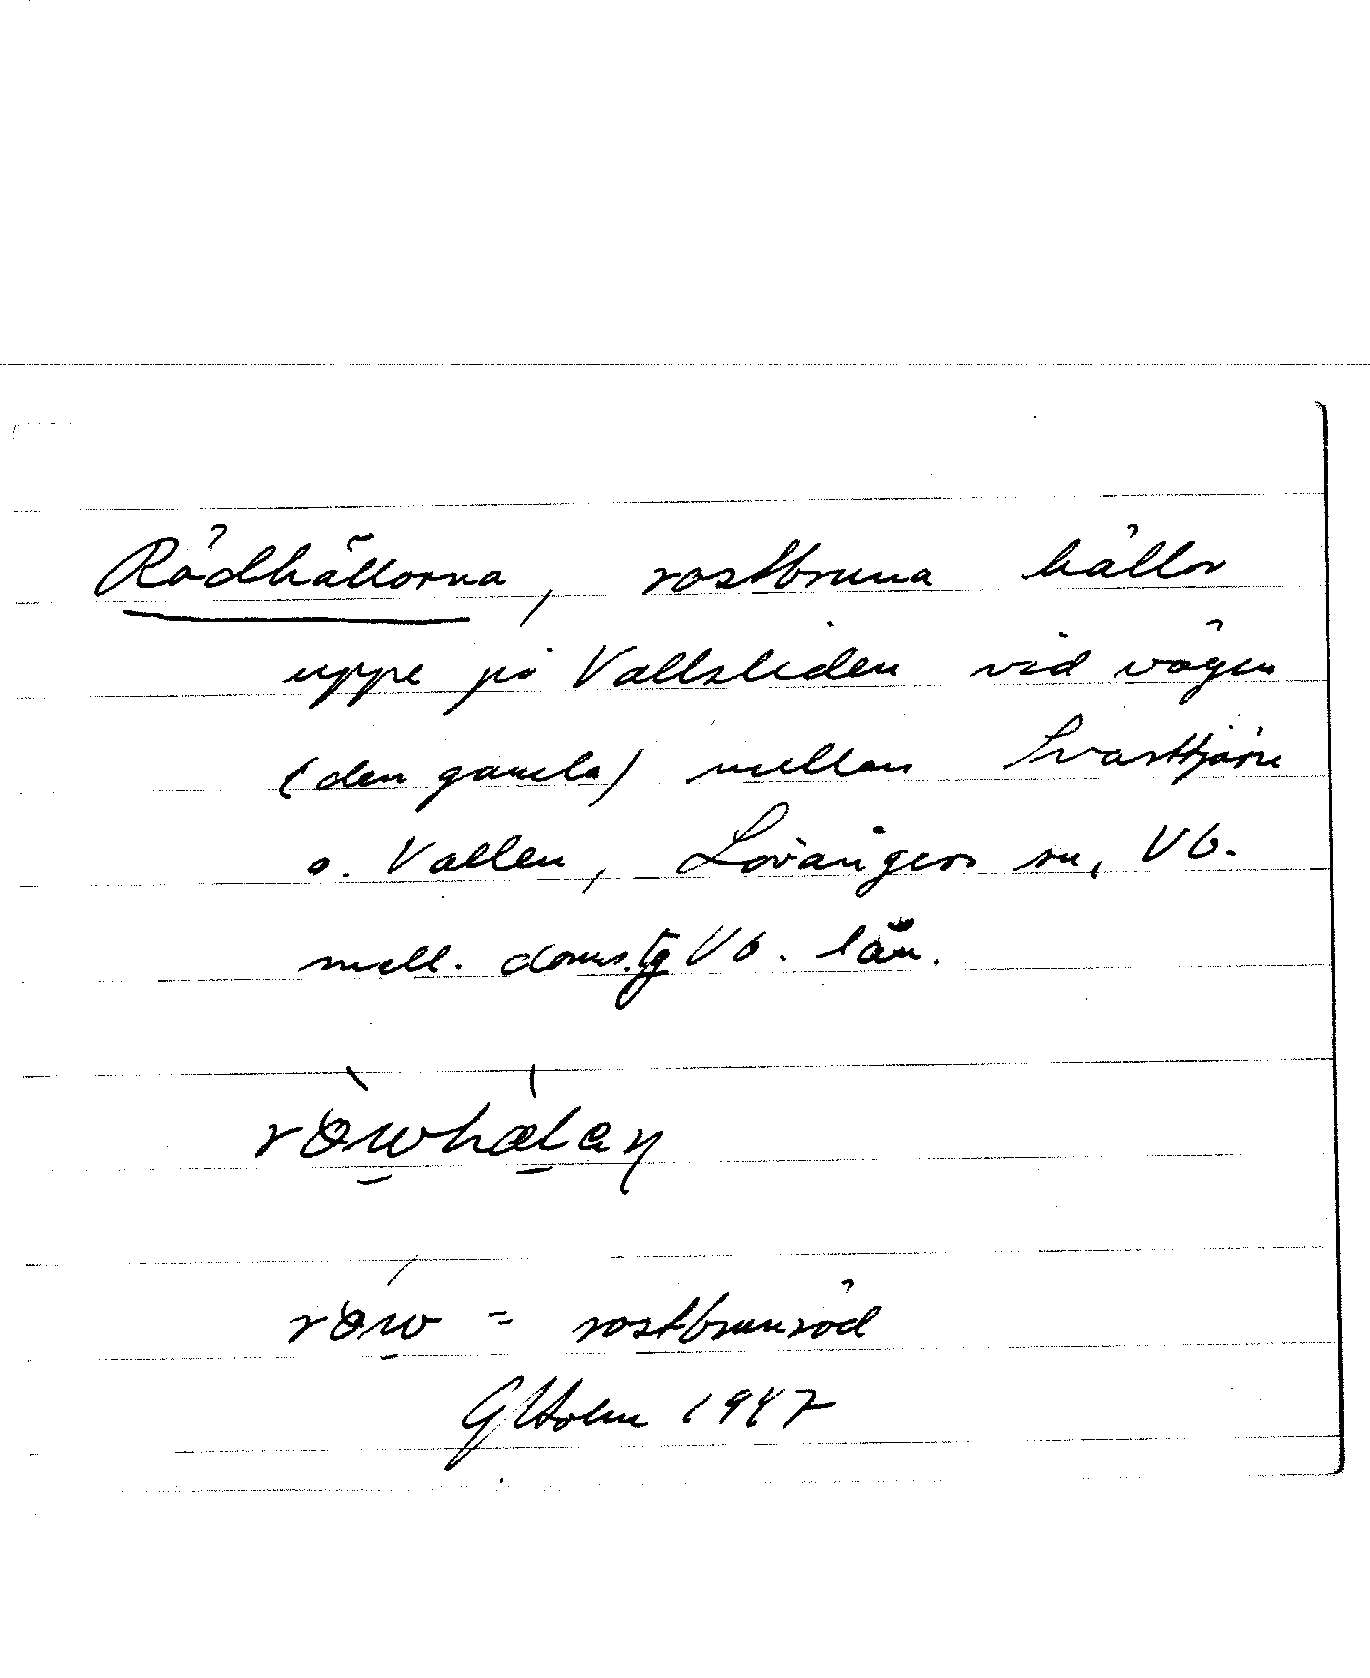 Rödhällorna, rostbruna hällor
uppe på Vallsliden vid vägen
(den gamla) mellan Svarttjärn
o. Vallen, Lövångers sn, Vb.
mell. doms.tg Vb. län.
röwhälan
röw = rostbrunröd
GHolm 1947